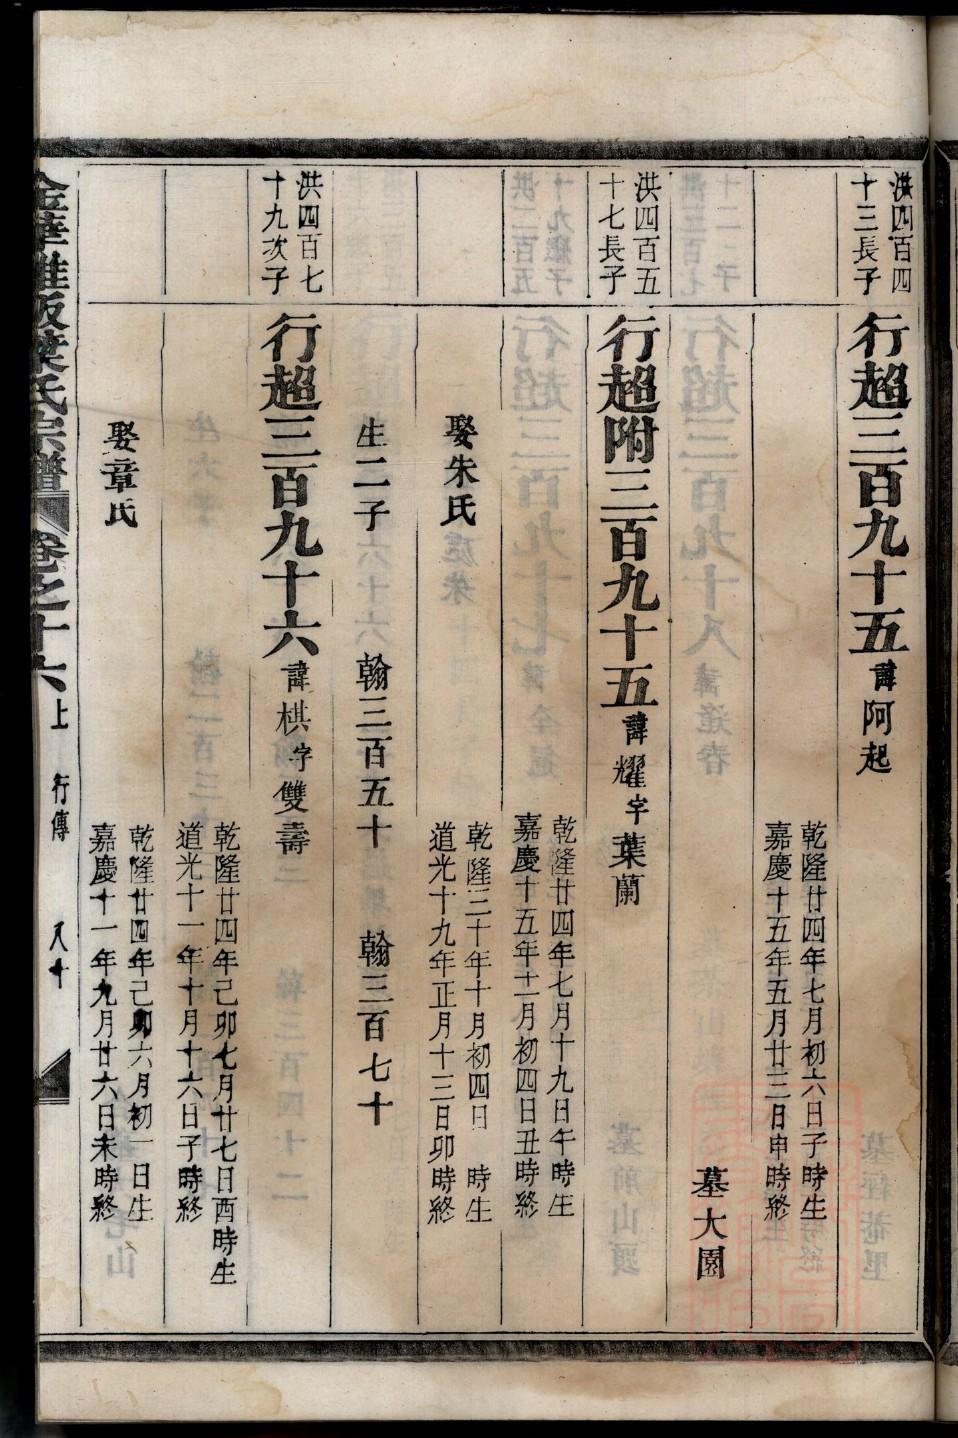 洪四百四
十三長子
行超三百九十五諱阿起
乾隆廿四年七月初六日子時生
嘉慶十五年五月廿三日申時終
墓大園
洪四百五
十七長子
行超附三百九十五諱耀字葉蘭
乾隆廿四年七月十九日午時生
嘉慶十五年十一月初四日丑時終
娶朱氏
乾隆三十年十月初四日 時生
道光十九年正月十三日卯時終
生二子 翰三百五十 翰三百七十
洪四百七
十九次子
行超三百九十六諱棋字雙壽
乾隆廿四年己卯七月廿七日酉時生
道光十一年十月十六日子時終
娶章氏
乾隆廿四年己卯六月初一日生
嘉慶十一年九月廿六日未時終
金華 葉氏宗譜 卷之十六上 行傳 八十